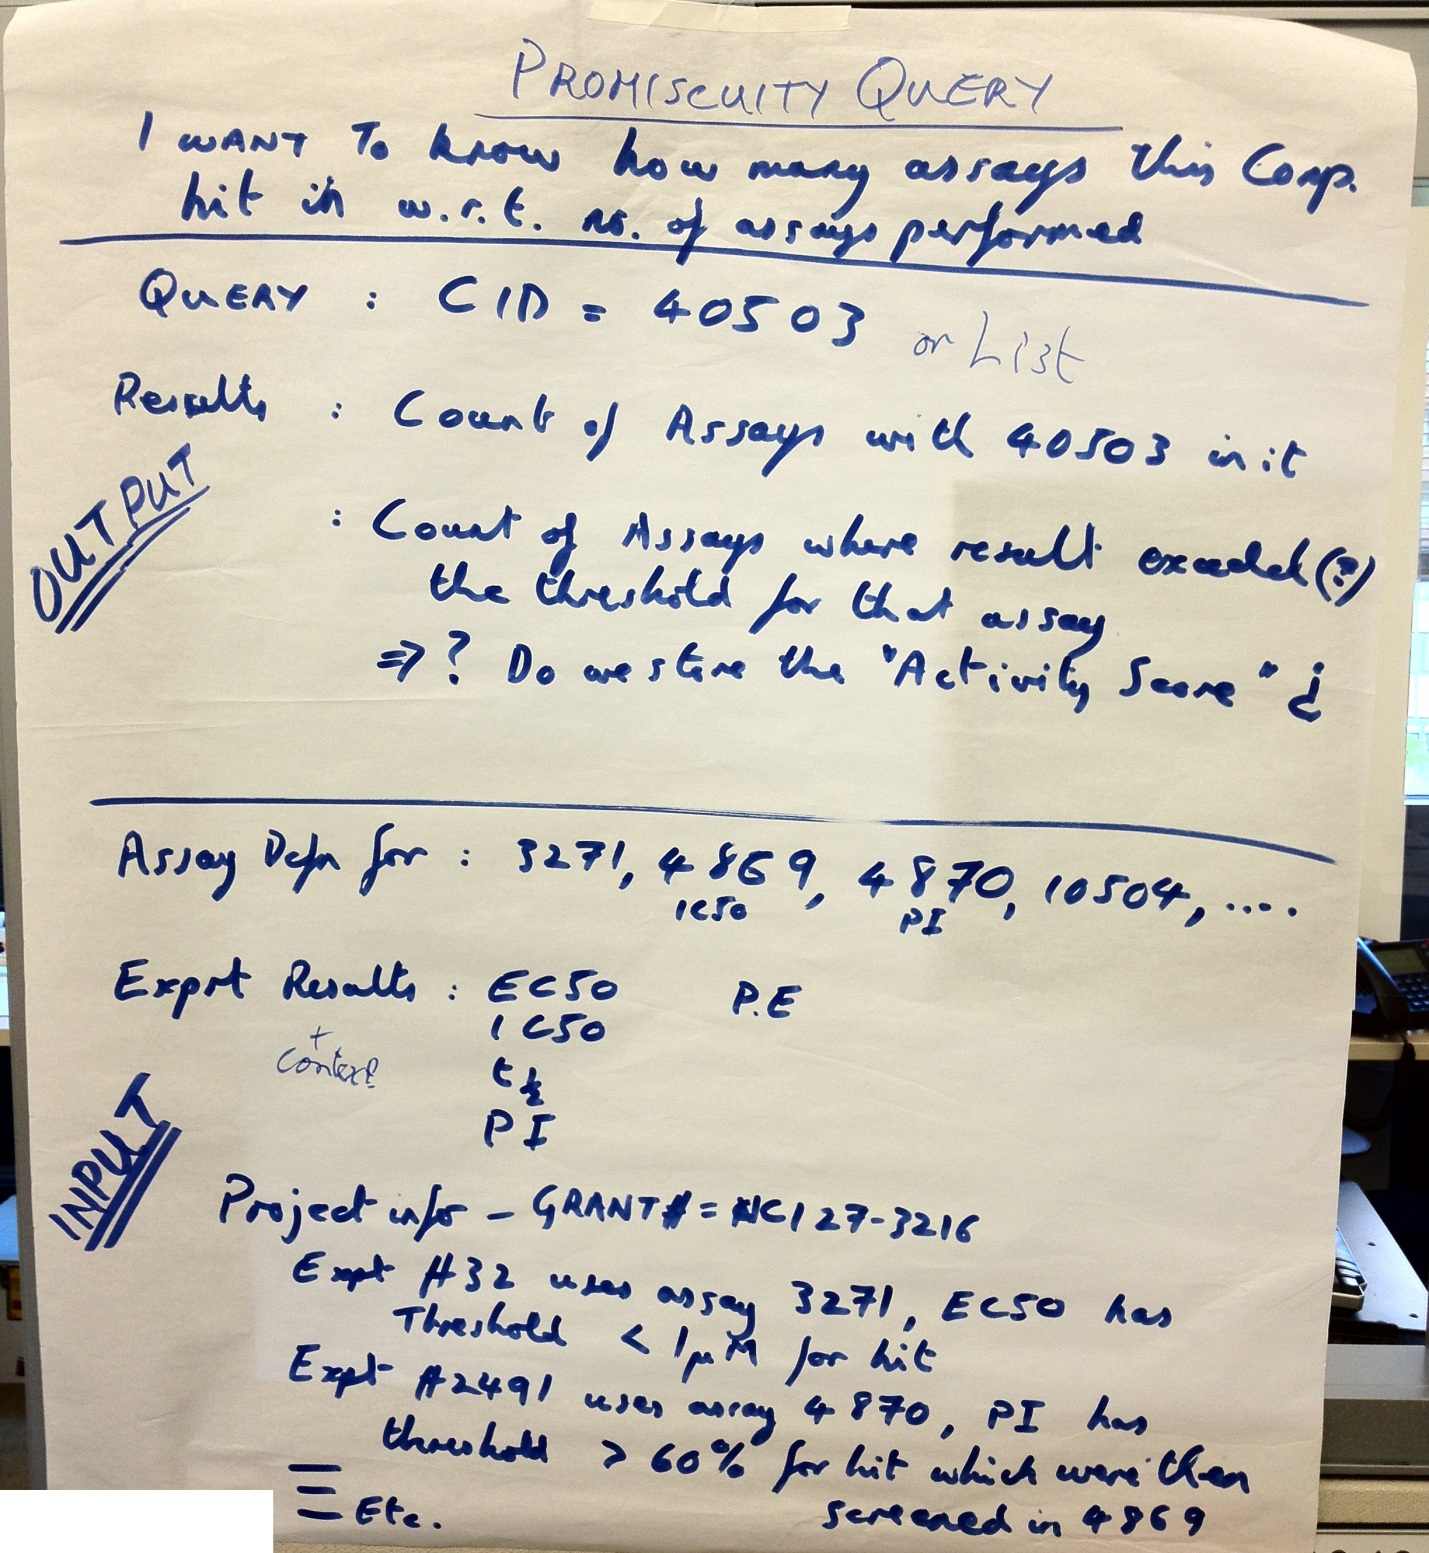 PROMISCUITY QUERY
I WANT To know how many assays this Comp.
hit in w.r.t. no. of assays performed
QUERY : CID = 40503 or List
Results : Count of Assays with 40503 in it
OUTPUT
: Count of Assays where result exceeded (?)
the threshold for that assay
⇒ ? Do we store the "Activity Score" ¿
Assay Defn for : 3271, 4869, 4870, 10504, ....
IC50 PI
Exprt Results : EC50 P.E
IC50
+
Context?
t½
PI
INPUT
Project info - GRANT# = NCI27-3216
Expt #32 uses assay 3271, EC50 has
Threshold < 1μM for hit
Expt #2491 uses assay 4870, PI has
threshold > 60% for hit which were then
screened in 4869
Etc.